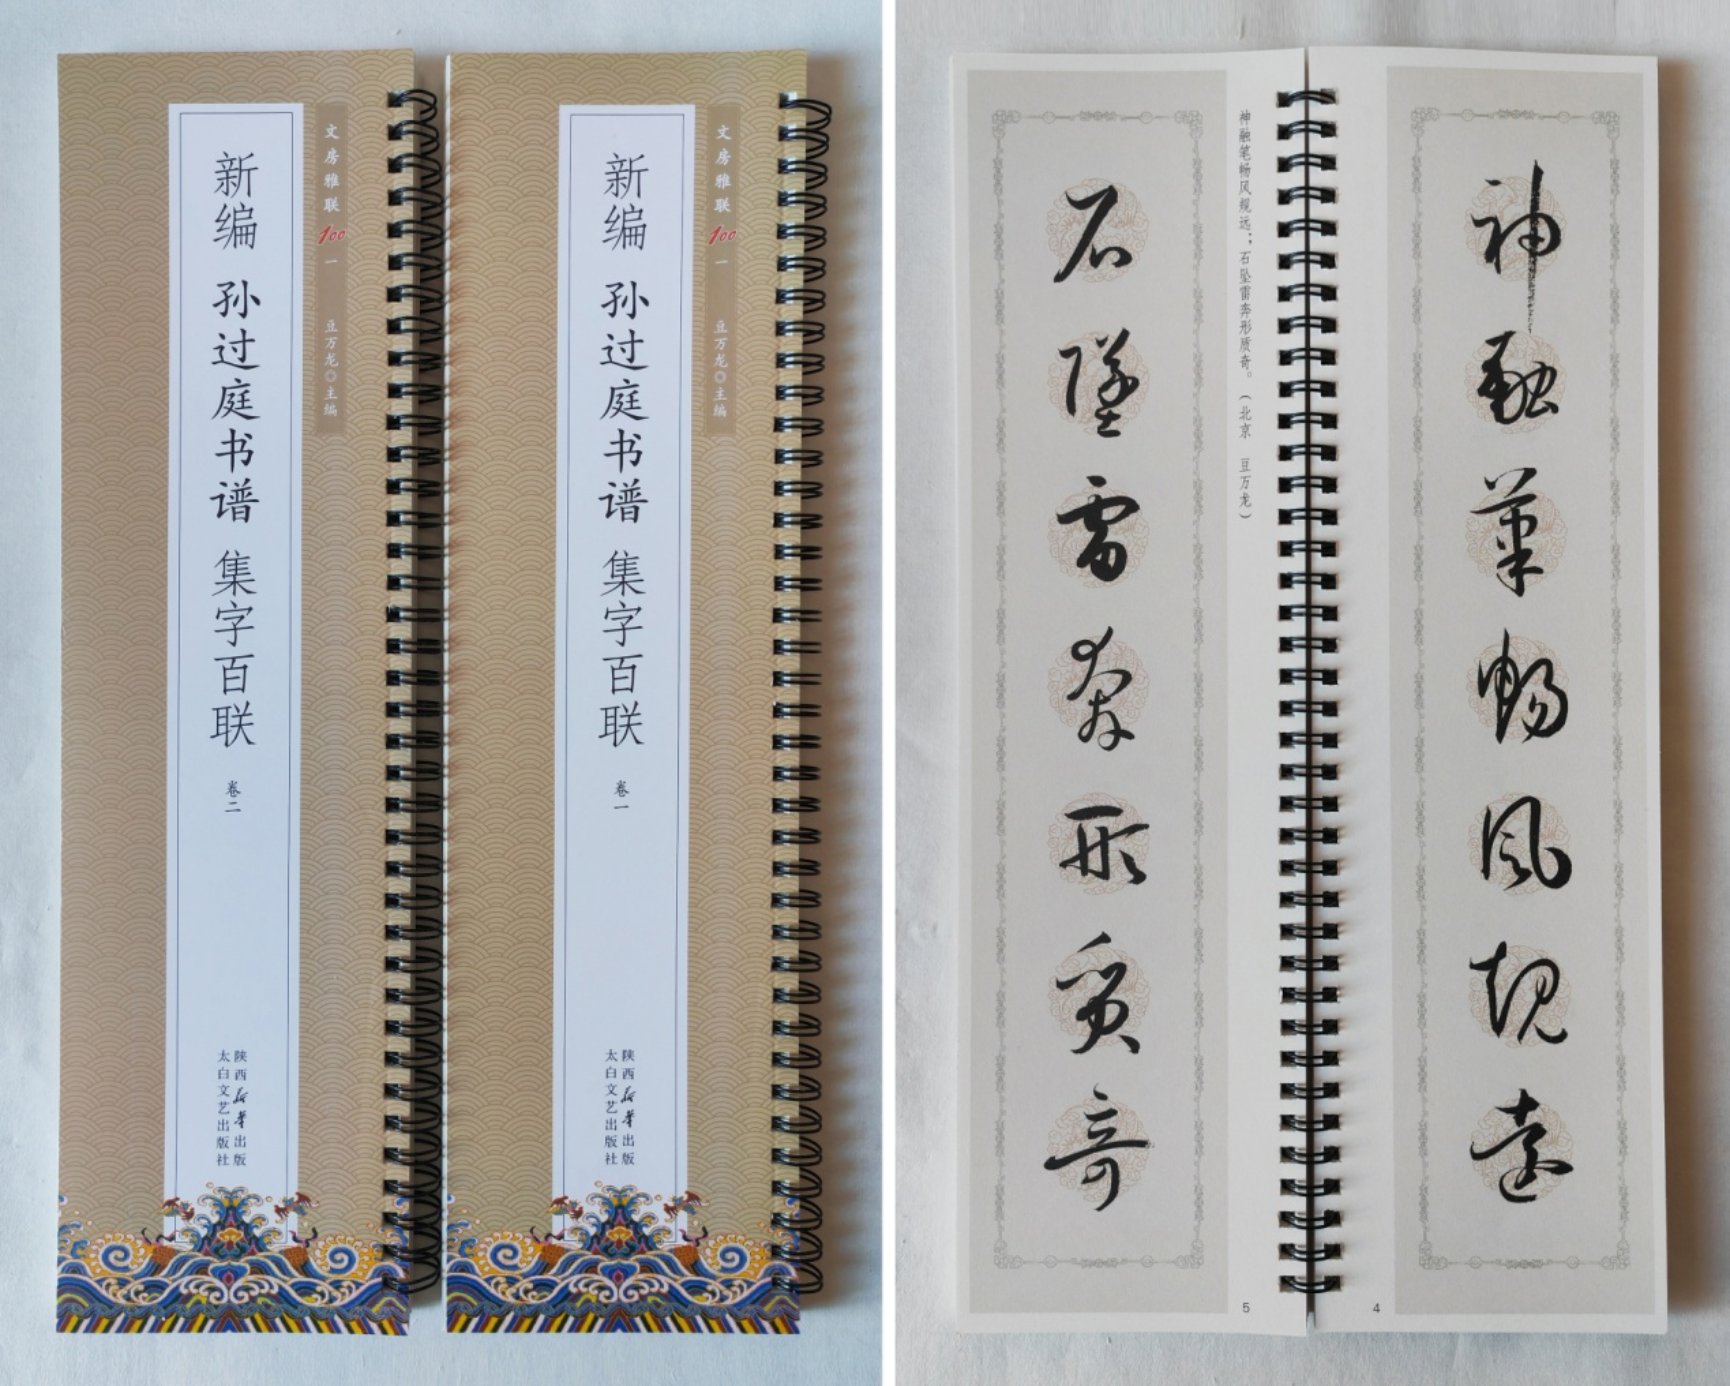 文房雅联100 一 豆万龙◎主编
新编 孙过庭书谱 集字百联 卷二
陕西新华出版
太白文艺出版社
文房雅联100 一 豆万龙◎主编
新编 孙过庭书谱 集字百联 卷一
陕西新华出版
太白文艺出版社
神融筆暢風規遠
4
神融笔畅风规远；石坠雷奔形质奇。（北京 豆万龙）
石墜雷奔形質奇
5